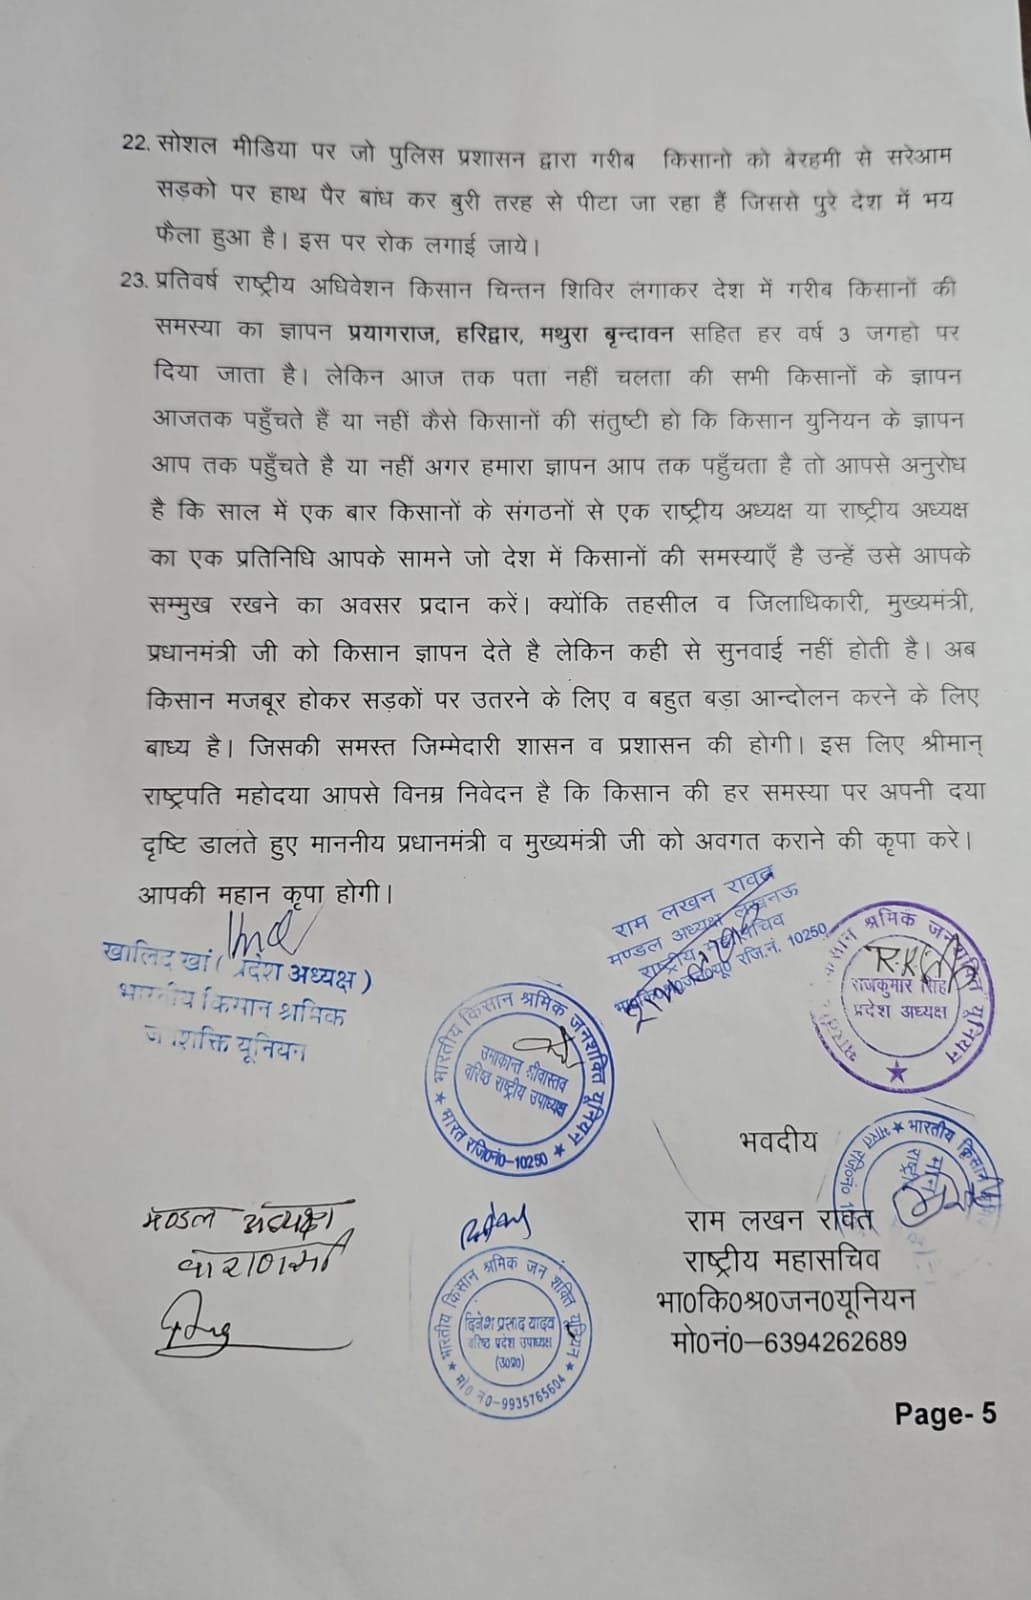 22. सोशल मीडिया पर जो पुलिस प्रशासन द्वारा गरीब किसानो को बेरहमी से सरेआम
सड़को पर हाथ पैर बांध कर बुरी तरह से पीटा जा रहा हैं जिससे पुरे देश में भय
फैला हुआ है। इस पर रोक लगाई जाये।
23. प्रतिवर्ष राष्ट्रीय अधिवेशन किसान चिन्तन शिविर लगाकर देश में गरीब किसानों की
समस्या का ज्ञापन प्रयागराज, हरिद्वार, मथुरा बृन्दावन सहित हर वर्ष 3 जगहो पर
दिया जाता है। लेकिन आज तक पता नहीं चलता की सभी किसानों के ज्ञापन
आजतक पहुँचते हैं या नहीं कैसे किसानों की संतुष्टी हो कि किसान युनियन के ज्ञापन
आप तक पहुँचते है या नहीं अगर हमारा ज्ञापन आप तक पहुँचता है तो आपसे अनुरोध
है कि साल में एक बार किसानों के संगठनों से एक राष्ट्रीय अध्यक्ष या राष्ट्रीय अध्यक्ष
का एक प्रतिनिधि आपके सामने जो देश में किसानों की समस्याएँ है उन्हें उसे आपके
सम्मुख रखने का अवसर प्रदान करें। क्योंकि तहसील व जिलाधिकारी, मुख्यमंत्री,
प्रधानमंत्री जी को किसान ज्ञापन देते है लेकिन कही से सुनवाई नहीं होती है। अब
किसान मजबूर होकर सड़कों पर उतरने के लिए व बहुत बड़ा आन्दोलन करने के लिए
बाध्य है। जिसकी समस्त जिम्मेदारी शासन व प्रशासन की होगी। इस लिए श्रीमान्
राष्ट्रपति महोदया आपसे विनम्र निवेदन है कि किसान की हर समस्या पर अपनी दया
दृष्टि डालते हुए माननीय प्रधानमंत्री व मुख्यमंत्री जी को अवगत कराने की कृपा करे।
आपकी महान कृपा होगी।
खालिद खां (प्रदेश अध्यक्ष)
भारतीय किसान श्रमिक
जनशक्ति यूनियन
राम लखन रावत
मण्डल अध्यक्ष लखनऊ
राष्ट्रीय महासचिव
रजि.नं. 10250
किसान श्रमिक जन शक्ति यूनियन
राजकुमार सिंह
प्रदेश अध्यक्ष
भारतीय किसान श्रमिक जनशक्ति यूनियन
उमाकान्त श्रीवास्तव
वरिष्ठ राष्ट्रीय उपाध्यक्ष
भारत रजि0नं0-10250
भवदीय
भारतीय किसान
भारत रजि0नं0
मण्डल अध्यक्ष
वाराणसी
भारतीय किसान श्रमिक जन शक्ति यूनियन
दिनेश प्रसाद यादव
वरिष्ठ प्रदेश उपाध्यक्ष
(उ0प्र0)
मो0 नं0-9935765604
राम लखन रावत
राष्ट्रीय महासचिव
भा0कि0श्र0जन0यूनियन
मो0नं0–6394262689
Page- 5